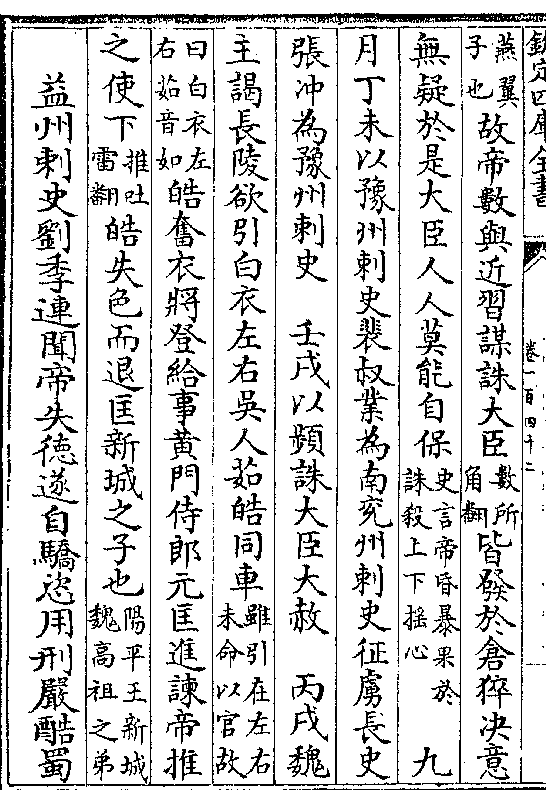 欽定四庫全書
卷一百四十二
燕翼子也故帝數與近習謀誅大臣數所角翻皆發於倉猝決意
無疑於是大臣人人莫能自保史言帝昏暴果於誅殺上下揺心　九
月丁未以豫州刺史裴叔業為南兖州刺史征虜長史
張沖為豫州刺史　壬戌以頻誅大臣大赦　丙戌魏
主謁長陵欲引白衣左右吳人茹皓同車雖引在左右未命以官故
曰白衣左右茹音如皓奮衣將登給事黄門侍郎元匡進諫帝推
之使下推吐雷翻皓失色而退匡新城之子也陽平王新城魏高祖之弟
益州刺史劉季連聞帝失徳遂自驕恣用刑嚴酷蜀